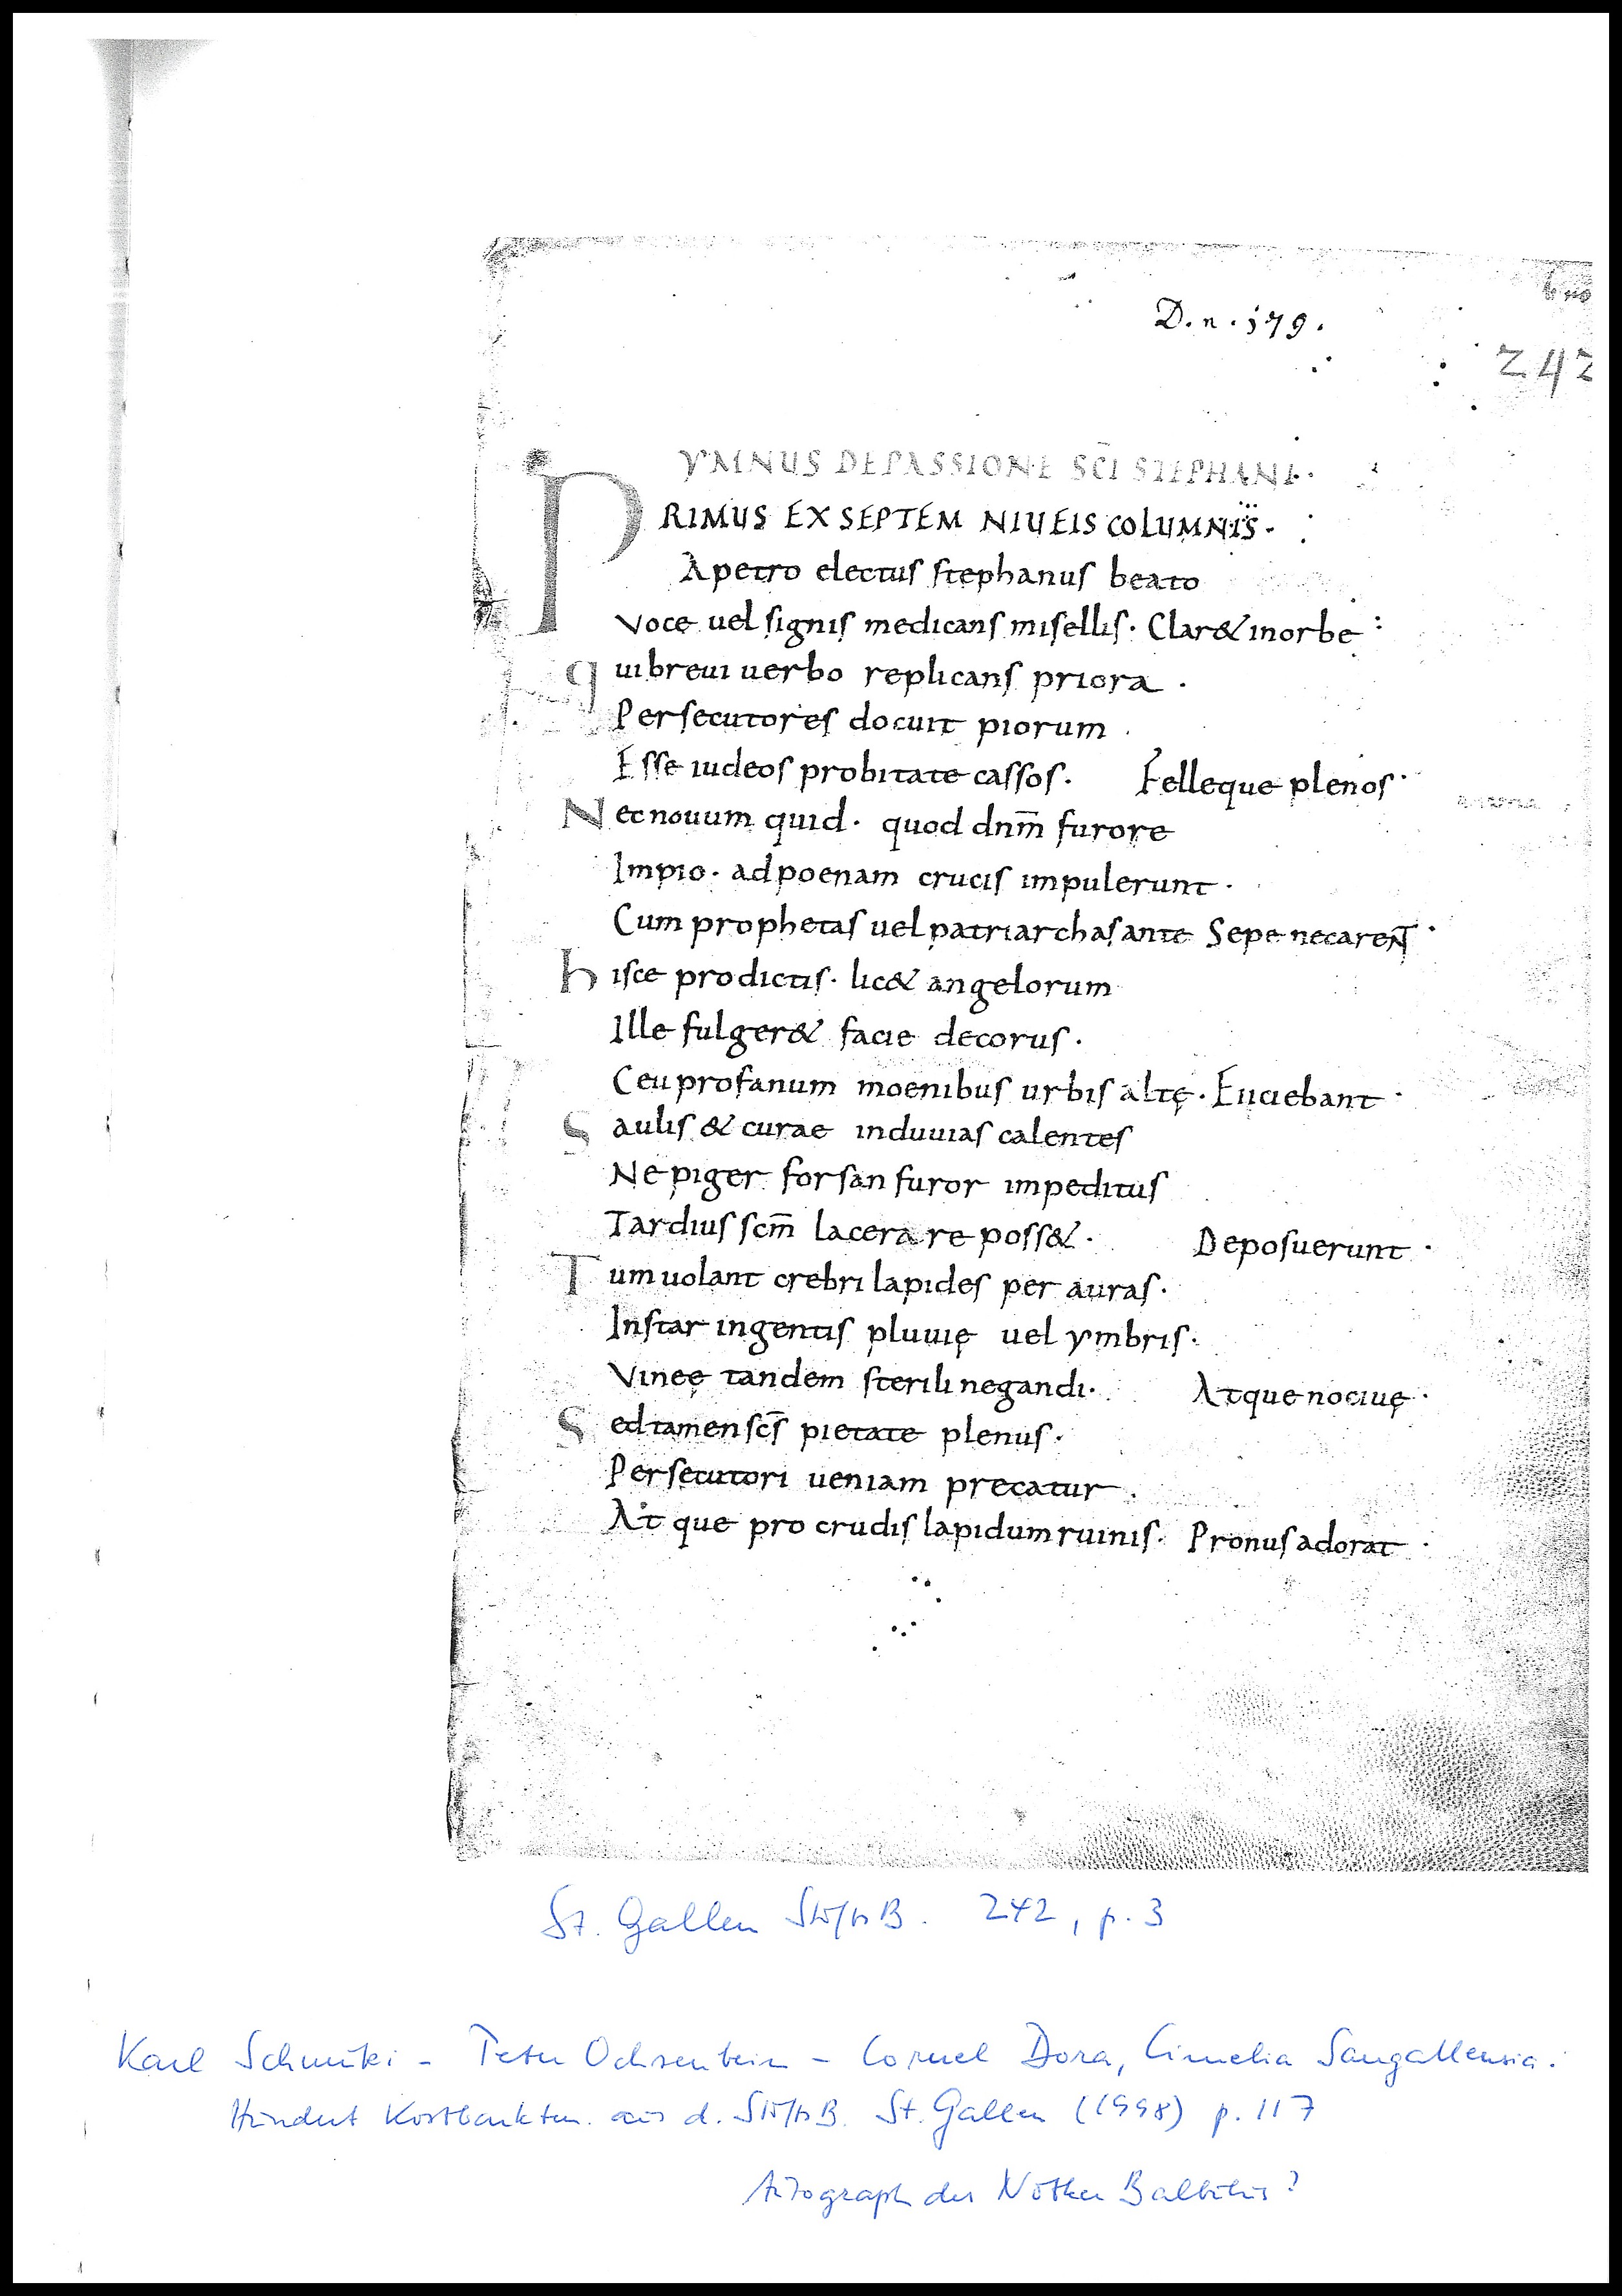 D. n. 179.
242
YMNUS DE PASSIONE SC̄I STEPHANI·
PRIMUS EX SEPTEM NIUEIS COLUMNIS·
A petro electus stephanus beato
Voce uel signis medicans misellis· Clar& in orbe
qui breui uerbo replicans priora·
Persecutores docuit piorum·
Esse iudeos probitate cassos· Felleque plenos·
Nec nouum quid· quod dnm̄ furore
Impio· ad poenam crucis impulerunt·
Cum prophetas uel patriarchas ante Sepe necarent·
hisce pro dictis· lic& angelorum
Ille fulger& facie decorus·
Ceu profanum moenibus urbis altę· Eiiciebant·
Saulis & curae induuias calentes
Ne piger forsan furor impeditus
Tardius scm̄ lacerare poss&· Deposuerunt·
Tum uolant crebri lapides per auras·
Instar ingentis pluuię uel ymbris·
Vineę tandem sterili negandi· Atque nociuę·
Sed tamen scs̄ pietate plenus·
Persecutori ueniam precatur·
At que pro crudis lapidum ruinis· Pronus adorat·
St. Gallen StiftsB. 242, p. 3
Karl Schmuki - Peter Ochsenbein - Cornel Dora, Cimelia Sangallensia.
Hundert Kostbarkeiten aus d. StiftsB. St. Gallen (1998) p. 117
Autograph des Notker Balbulus?